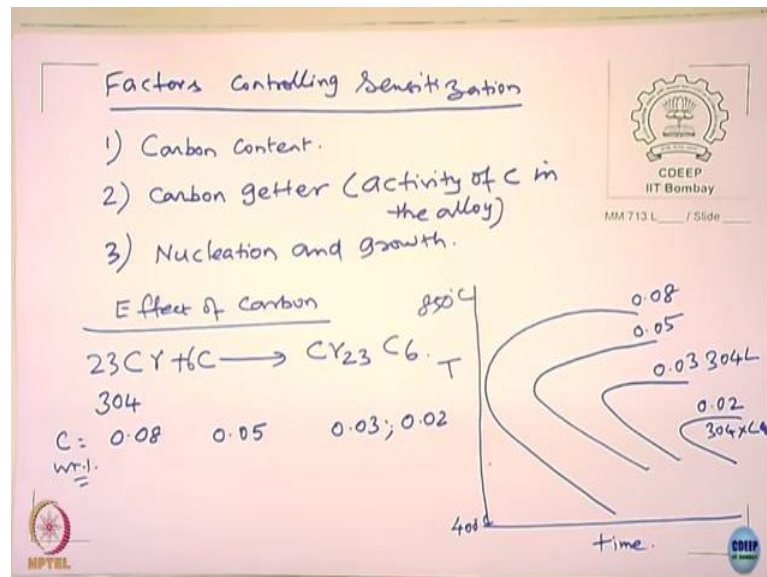 Factors Controlling Sensitization
1) Carbon Content.
2) Carbon getter (activity of C in
the alloy)
3) Nucleation and growth.
Effect of Carbon
23Cr + 6C → Cr23 C6.
304
C: 0.08 0.05 0.03; 0.02
wt.%
850°C
T
400
time.
0.08
0.05
0.03 304L
0.02
CDEEP
IIT Bombay
MM 713 L / Slide
NPTEL
CDEEP
IIT BOMBAY